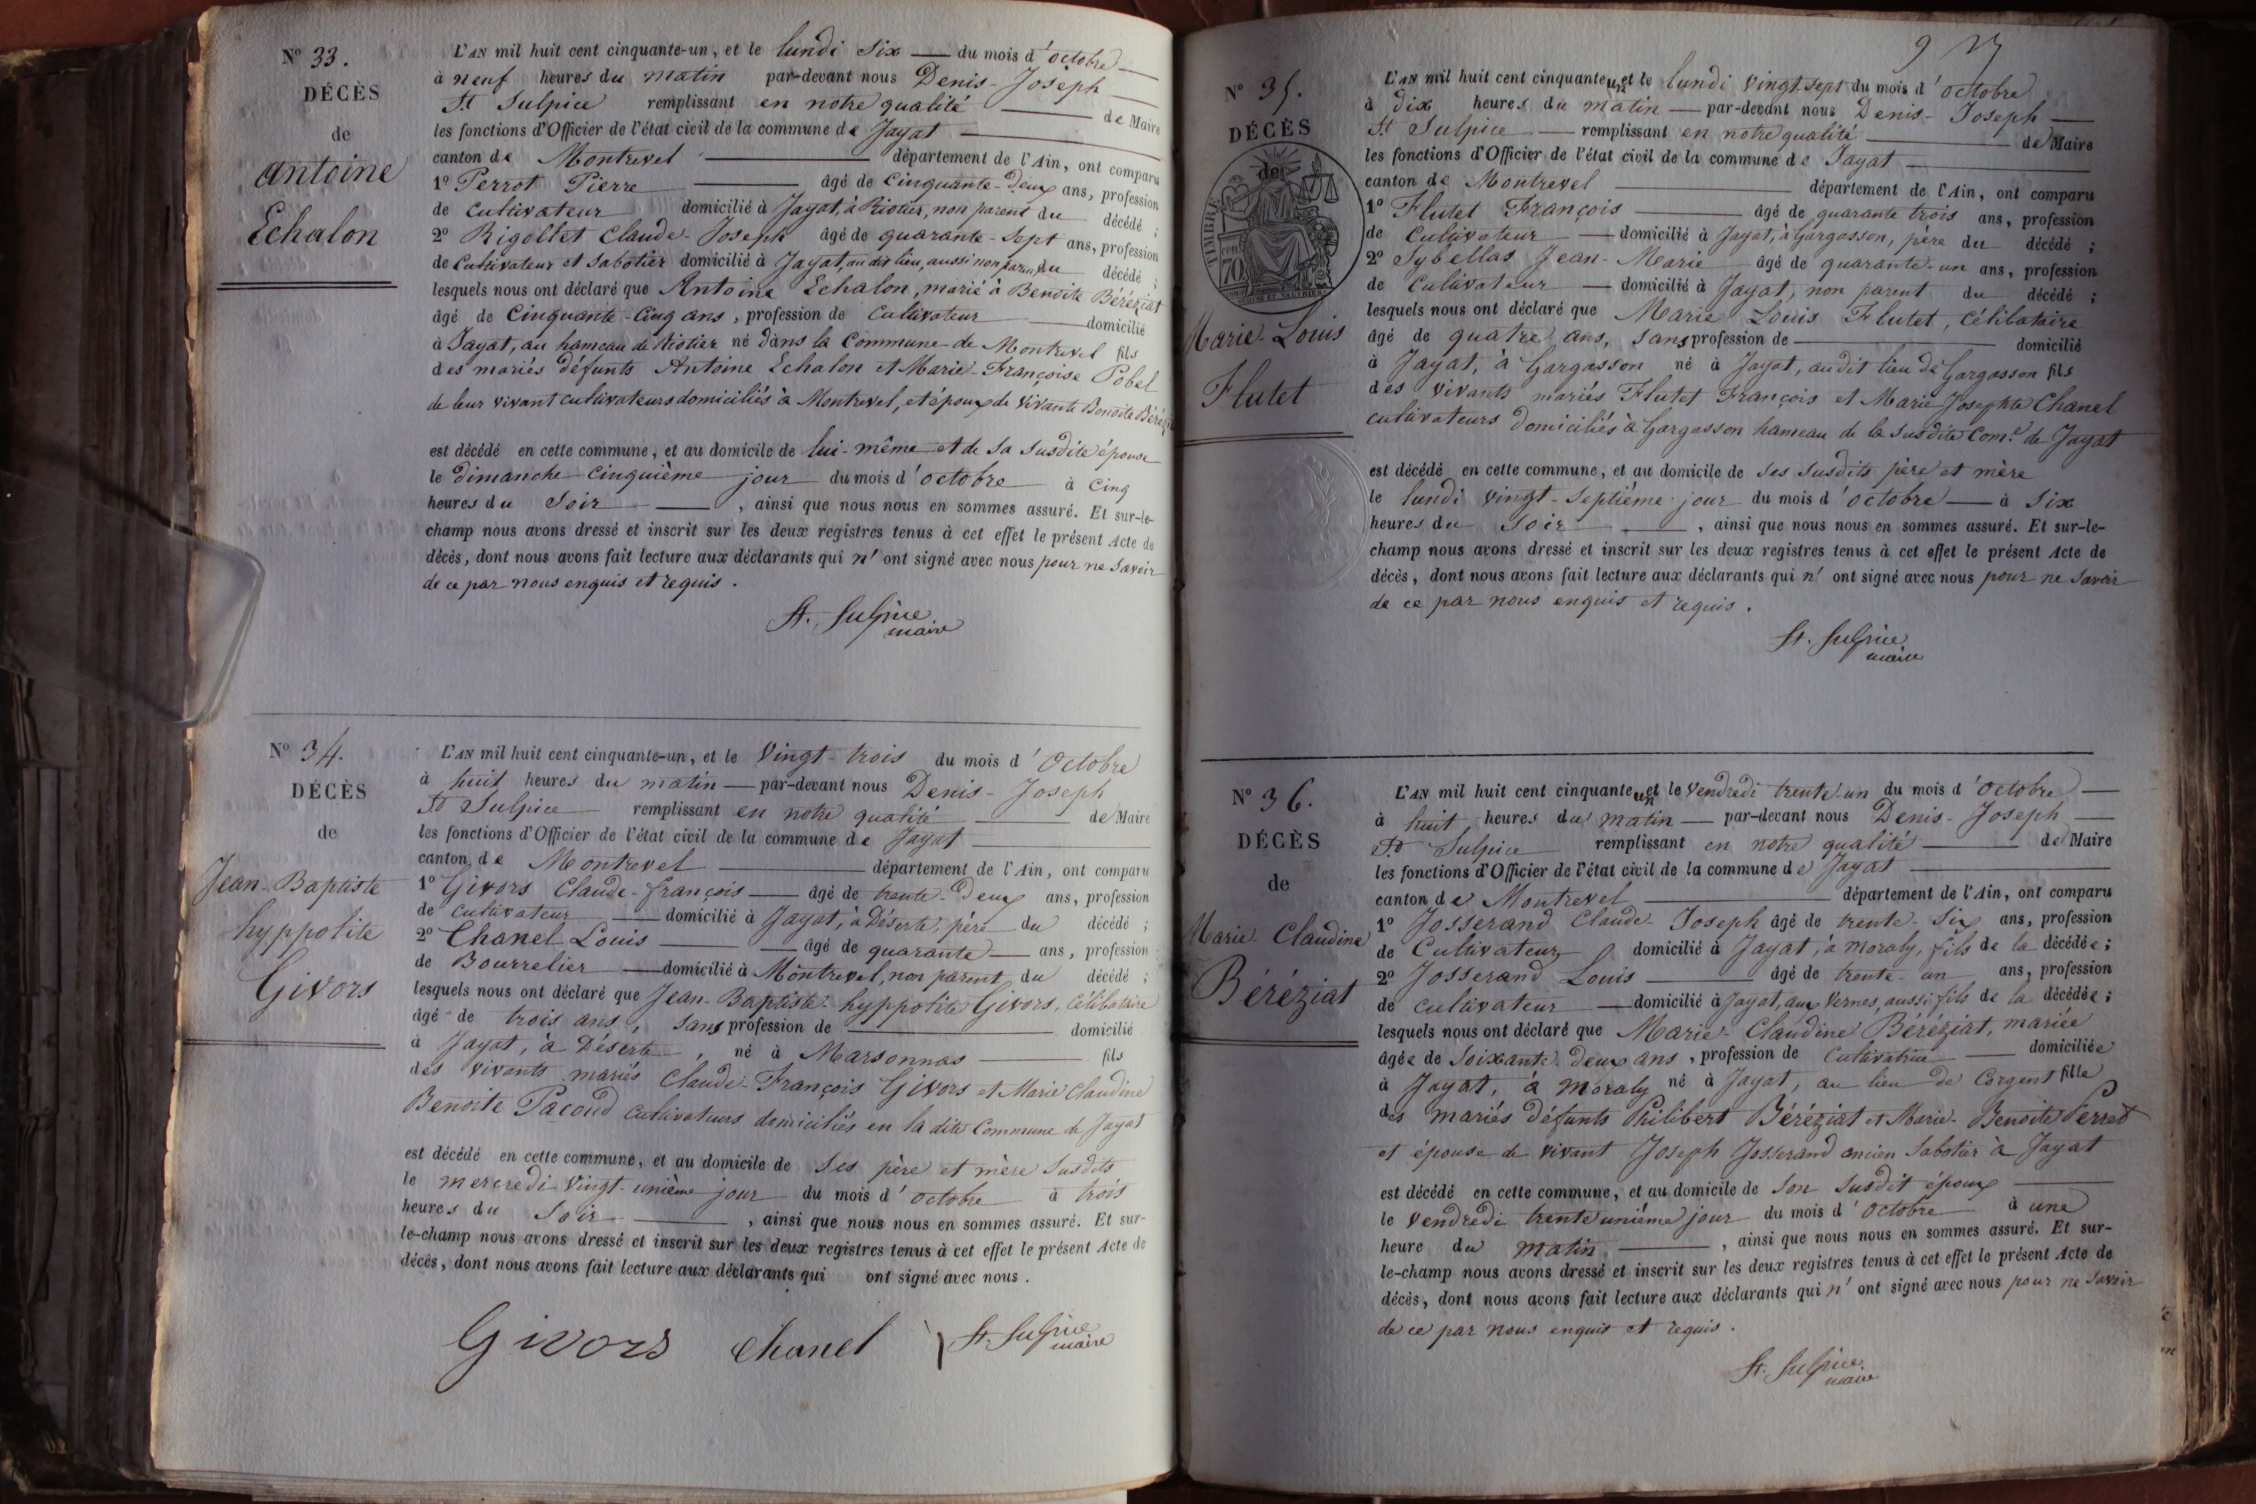 N° 33.
DÉCÈS
de
Antoine
Echalon
L'AN mil huit cent cinquante-un, et le lundi six du mois d'octobre
à neuf heures du matin par-devant nous Denis-Joseph
St Sulpice remplissant en notre qualité de Maire
les fonctions d'Officier de l'état civil de la commune de Jayat
canton de Montrevel département de l'Ain, ont comparu
1° Perrot Pierre âgé de cinquante-deux ans, profession
de cultivateur domicilié à Jayat, à Riotier, non parent du décédé ;
2° Rigollet Claude-Joseph âgé de quarante-sept ans, profession
de cultivateur et sabotier domicilié à Jayat, au dit lieu, aussi non parent du décédé ;
lesquels nous ont déclaré que Antoine Echalon, marié à Benoite Béréziat
âgé de cinquante-cinq ans, profession de cultivateur domicilié
à Jayat, au hameau de Riotier né dans la commune de Montrevel fils
des mariés défunts Antoine Echalon et Marie-Françoise Pobel
de leur vivant cultivateurs domiciliés à Montrevel, et époux de vivante Benoite
est décédé en cette commune, et au domicile de lui-même et de sa susdite épouse
le dimanche cinquième jour du mois d'octobre à cinq
heures du soir , ainsi que nous nous en sommes assuré. Et sur-le-
champ nous avons dressé et inscrit sur les deux registres tenus à cet effet le présent Acte de
décès, dont nous avons fait lecture aux déclarants qui n'ont signé avec nous pour ne savoir
de ce par nous enquis et requis.
St. Sulpice
maire
N° 34.
DÉCÈS
de
Jean-Baptiste
hyppolite
Givors
L'AN mil huit cent cinquante-un, et le vingt-trois du mois d'Octobre
à huit heures du matin par-devant nous Denis-Joseph
St Sulpice remplissant en notre qualité de Maire
les fonctions d'Officier de l'état civil de la commune de Jayat
canton de Montrevel département de l'Ain, ont comparu
1° Givors Claude-françois âgé de trente-deux ans, profession
de cultivateur domicilié à Jayat, à Déserte, père du décédé ;
2° Chanel Louis âgé de quarante ans, profession
de Bourrelier domicilié à Montrevel, non parent du décédé ;
lesquels nous ont déclaré que Jean-Baptiste-hyppolite Givors, célibataire
âgé de trois ans, sans profession de domicilié
à Jayat, à Déserte, né à Marsonnas fils
des vivants mariés Claude-François Givors et Marie Claudine
Benoite Pacoud cultivateurs domiciliés en la dite Commune de Jayat
est décédé en cette commune, et au domicile de ses père et mère susdits
le mercredi vingt-unième jour du mois d'octobre à trois
heures du soir , ainsi que nous nous en sommes assuré. Et sur-
le-champ nous avons dressé et inscrit sur les deux registres tenus à cet effet le présent Acte de
décès, dont nous avons fait lecture aux déclarants qui ont signé avec nous.
Givors Chanel St. Sulpice
maire
N° 35.
DÉCÈS
de
TIMBRE
70
Marie-Louis
Flutet
L'AN mil huit cent cinquante un et le lundi vingt-sept du mois d'octobre
à dix heures du matin par-devant nous Denis-Joseph
St Sulpice remplissant en notre qualité de Maire
les fonctions d'Officier de l'état civil de la commune de Jayat
canton de Montrevel département de l'Ain, ont comparu
1° Flutet François âgé de quarante trois ans, profession
de Cultivateur domicilié à Jayat, à Gargasson, père du décédé ;
2° Sybellas Jean-Marie âgé de quarante-un ans, profession
de Cultivateur domicilié à Jayat, non parent du décédé ;
lesquels nous ont déclaré que Marie Louis Flutet, célibataire
âgé de quatre ans, sans profession de domicilié
à Jayat, à Gargasson né à Jayat, audit lieu de Gargasson fils
des vivants mariés Flutet François et Marie Josephte Chanel
cultivateurs domiciliés à Gargasson hameau de la susdite Com.e de Jayat
est décédé en cette commune, et au domicile de ses susdits père et mère
le lundi vingt-septième jour du mois d'octobre à six
heures du soir , ainsi que nous nous en sommes assuré. Et sur-le-
champ nous avons dressé et inscrit sur les deux registres tenus à cet effet le présent Acte de
décès, dont nous avons fait lecture aux déclarants qui n'ont signé avec nous pour ne savoir
de ce par nous enquis et requis.
St. Sulpice
maire
N° 36.
DÉCÈS
de
Marie Claudine
Béréziat
L'AN mil huit cent cinquante un et le vendredi trente-un du mois d'octobre
à huit heures du matin par-devant nous Denis-Joseph
St Sulpice remplissant en notre qualité de Maire
les fonctions d'Officier de l'état civil de la commune de Jayat
canton de Montrevel département de l'Ain, ont comparu
1° Josserand Claude-Joseph âgé de trente-six ans, profession
de Cultivateur domicilié à Jayat, à moraly, fils de la décédée ;
2° Josserand Louis âgé de trente-un ans, profession
de cultivateur domicilié à Jayat, aux Vernes, aussi fils de la décédée ;
lesquels nous ont déclaré que Marie-Claudine Béréziat, mariée
âgée de soixante-deux ans, profession de cultivatrice domiciliée
à Jayat, à moraly né à Jayat, au lieu de Corgent fille
des mariés défunts Philibert Béréziat et Marie-Benoite Perret
et épouse de vivant Joseph Josserand ancien sabotier à Jayat
est décédé en cette commune, et au domicile de son susdit époux
le vendredi trente unième jour du mois d'octobre à une
heure du matin , ainsi que nous nous en sommes assuré. Et sur-
le-champ nous avons dressé et inscrit sur les deux registres tenus à cet effet le présent Acte de
décès, dont nous avons fait lecture aux déclarants qui n'ont signé avec nous pour ne savoir
de ce par nous enquis et requis.
St. Sulpice
maire